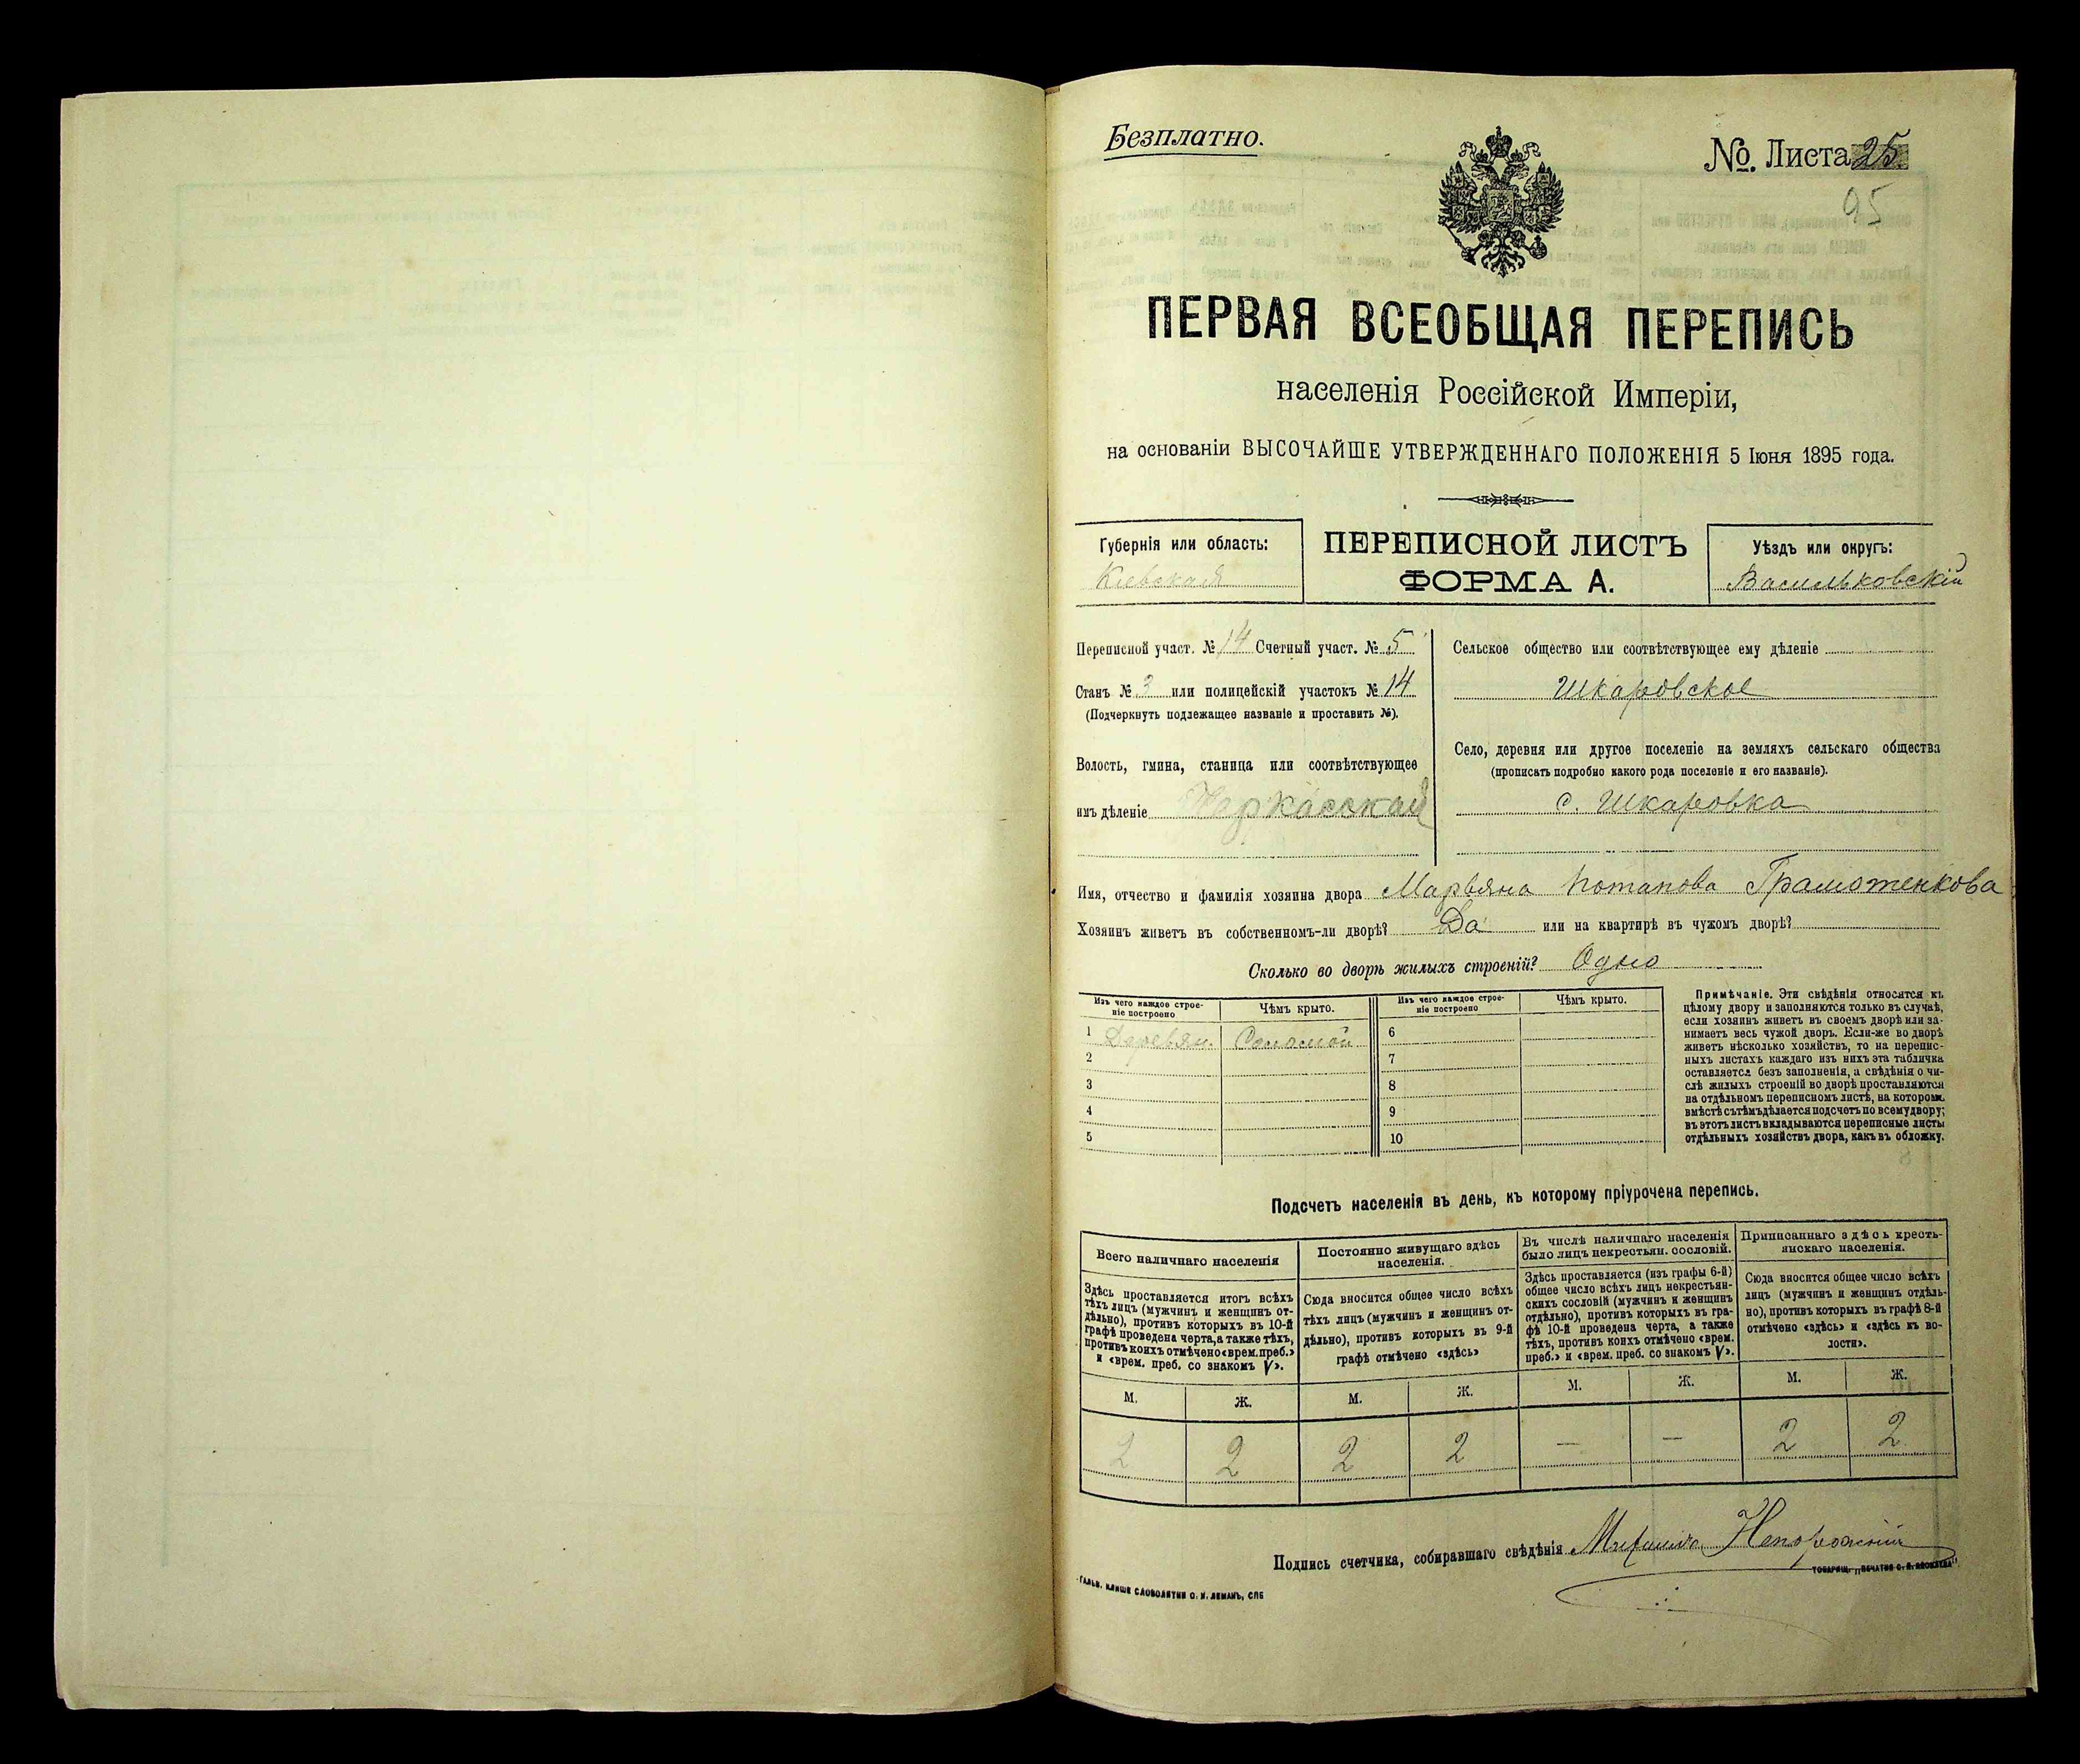 Безплатно.
№ Листа 25
95
ПЕРВАЯ ВСЕОБЩАЯ ПЕРЕПИСЬ
населенія Россійской Имперіи,
на основаніи ВЫСОЧАЙШЕ УТВЕРЖДЕННАГО ПОЛОЖЕНІЯ 5 Іюня 1895 года.
Губернія или область:
Кіевская
ПЕРЕПИСНОЙ ЛИСТЪ
ФОРМА А.
Уѣздъ или округъ:
Васильковскій
Переписной участ. № 14 Счетный участ. № 5
Станъ № 3 или полицейскій участокъ № 14
(Подчеркнуть подлежащее названіе и проставить №).
Волость, гмина, станица или соотвѣтствующее
имъ дѣленіе Черкасская
Сельское общество или соотвѣтствующее ему дѣленіе
Шкаровское
Село, деревня или другое поселеніе на земляхъ сельскаго общества
(прописать подробно какого рода поселеніе и его названіе).
с. Шкаровка
Имя, отчество и фамилія хозяина двора Марьяна Потапова Грамотенкова
Хозяинъ живетъ въ собственномъ-ли дворѣ? Да или на квартирѣ въ чужомъ дворѣ?
Сколько во дворѣ жилыхъ строеній? Одно
Изъ чего каждое строе-
ніе построено
Чѣмъ крыто.
Изъ чего каждое строе-
ніе построено
Чѣмъ крыто.
1 Деревян. Соломой 6
2 7
3 8
4 9
5 10
Примѣчаніе. Эти свѣдѣнія относятся къ
цѣлому двору и заполняются только въ случаѣ,
если хозяинъ живетъ въ своемъ дворѣ или за-
нимаетъ весь чужой дворъ. Если-же во дворѣ
живетъ нѣсколько хозяйствъ, то на перепис-
ныхъ листахъ каждаго изъ нихъ эта табличка
оставляется безъ заполненія, а свѣдѣнія о чи-
слѣ жилыхъ строеній во дворѣ проставляются
на отдѣльномъ переписномъ листѣ, на которомъ
вмѣстѣ съ тѣмъ дѣлается подсчетъ по всему двору;
въ этотъ листъ вкладываются переписные листы
отдѣльныхъ хозяйствъ двора, какъ въ обложку.
Подсчетъ населенія въ день, къ которому пріурочена перепись.
Всего наличнаго населенія
Здѣсь проставляется итогъ всѣхъ
тѣхъ лицъ (мужчинъ и женщинъ от-
дѣльно), противъ которыхъ въ 10-й
графѣ проведена черта, а также тѣхъ,
противъ коихъ отмѣчено «врем. преб.»
и «врем. преб. со знакомъ V».
Постоянно живущаго здѣсь
населенія.
Сюда вносится общее число всѣхъ
тѣхъ лицъ (мужчинъ и женщинъ от-
дѣльно), противъ которыхъ въ 9-й
графѣ отмѣчено «здѣсь»
Въ числѣ наличнаго населенія
было лицъ некрестьян. сословій.
Здѣсь проставляется (изъ графы 6-й)
общее число всѣхъ лицъ некрестьян-
скихъ сословій (мужчинъ и женщинъ
отдѣльно), противъ которыхъ въ гра-
фѣ 10-й проведена черта, а также
тѣхъ, противъ коихъ отмѣчено «врем.
преб.» и «врем. преб. со знакомъ V».
Приписаннаго здѣсь кресть-
янскаго населенія.
Сюда вносится общее число всѣхъ
лицъ (мужчинъ и женщинъ отдѣль-
но), противъ которыхъ въ графѣ 8-й
отмѣчено «здѣсь» и «здѣсь къ во-
лости».
М. Ж. М. Ж. М. Ж. М. Ж.
2 2 2 2 — — 2 2
Подпись счетчика, собиравшаго свѣдѣнія
ГАЛЬВ. КЛИШЕ СЛОВОЛИТНИ О. И. ЛЕМАНЪ, СПБ